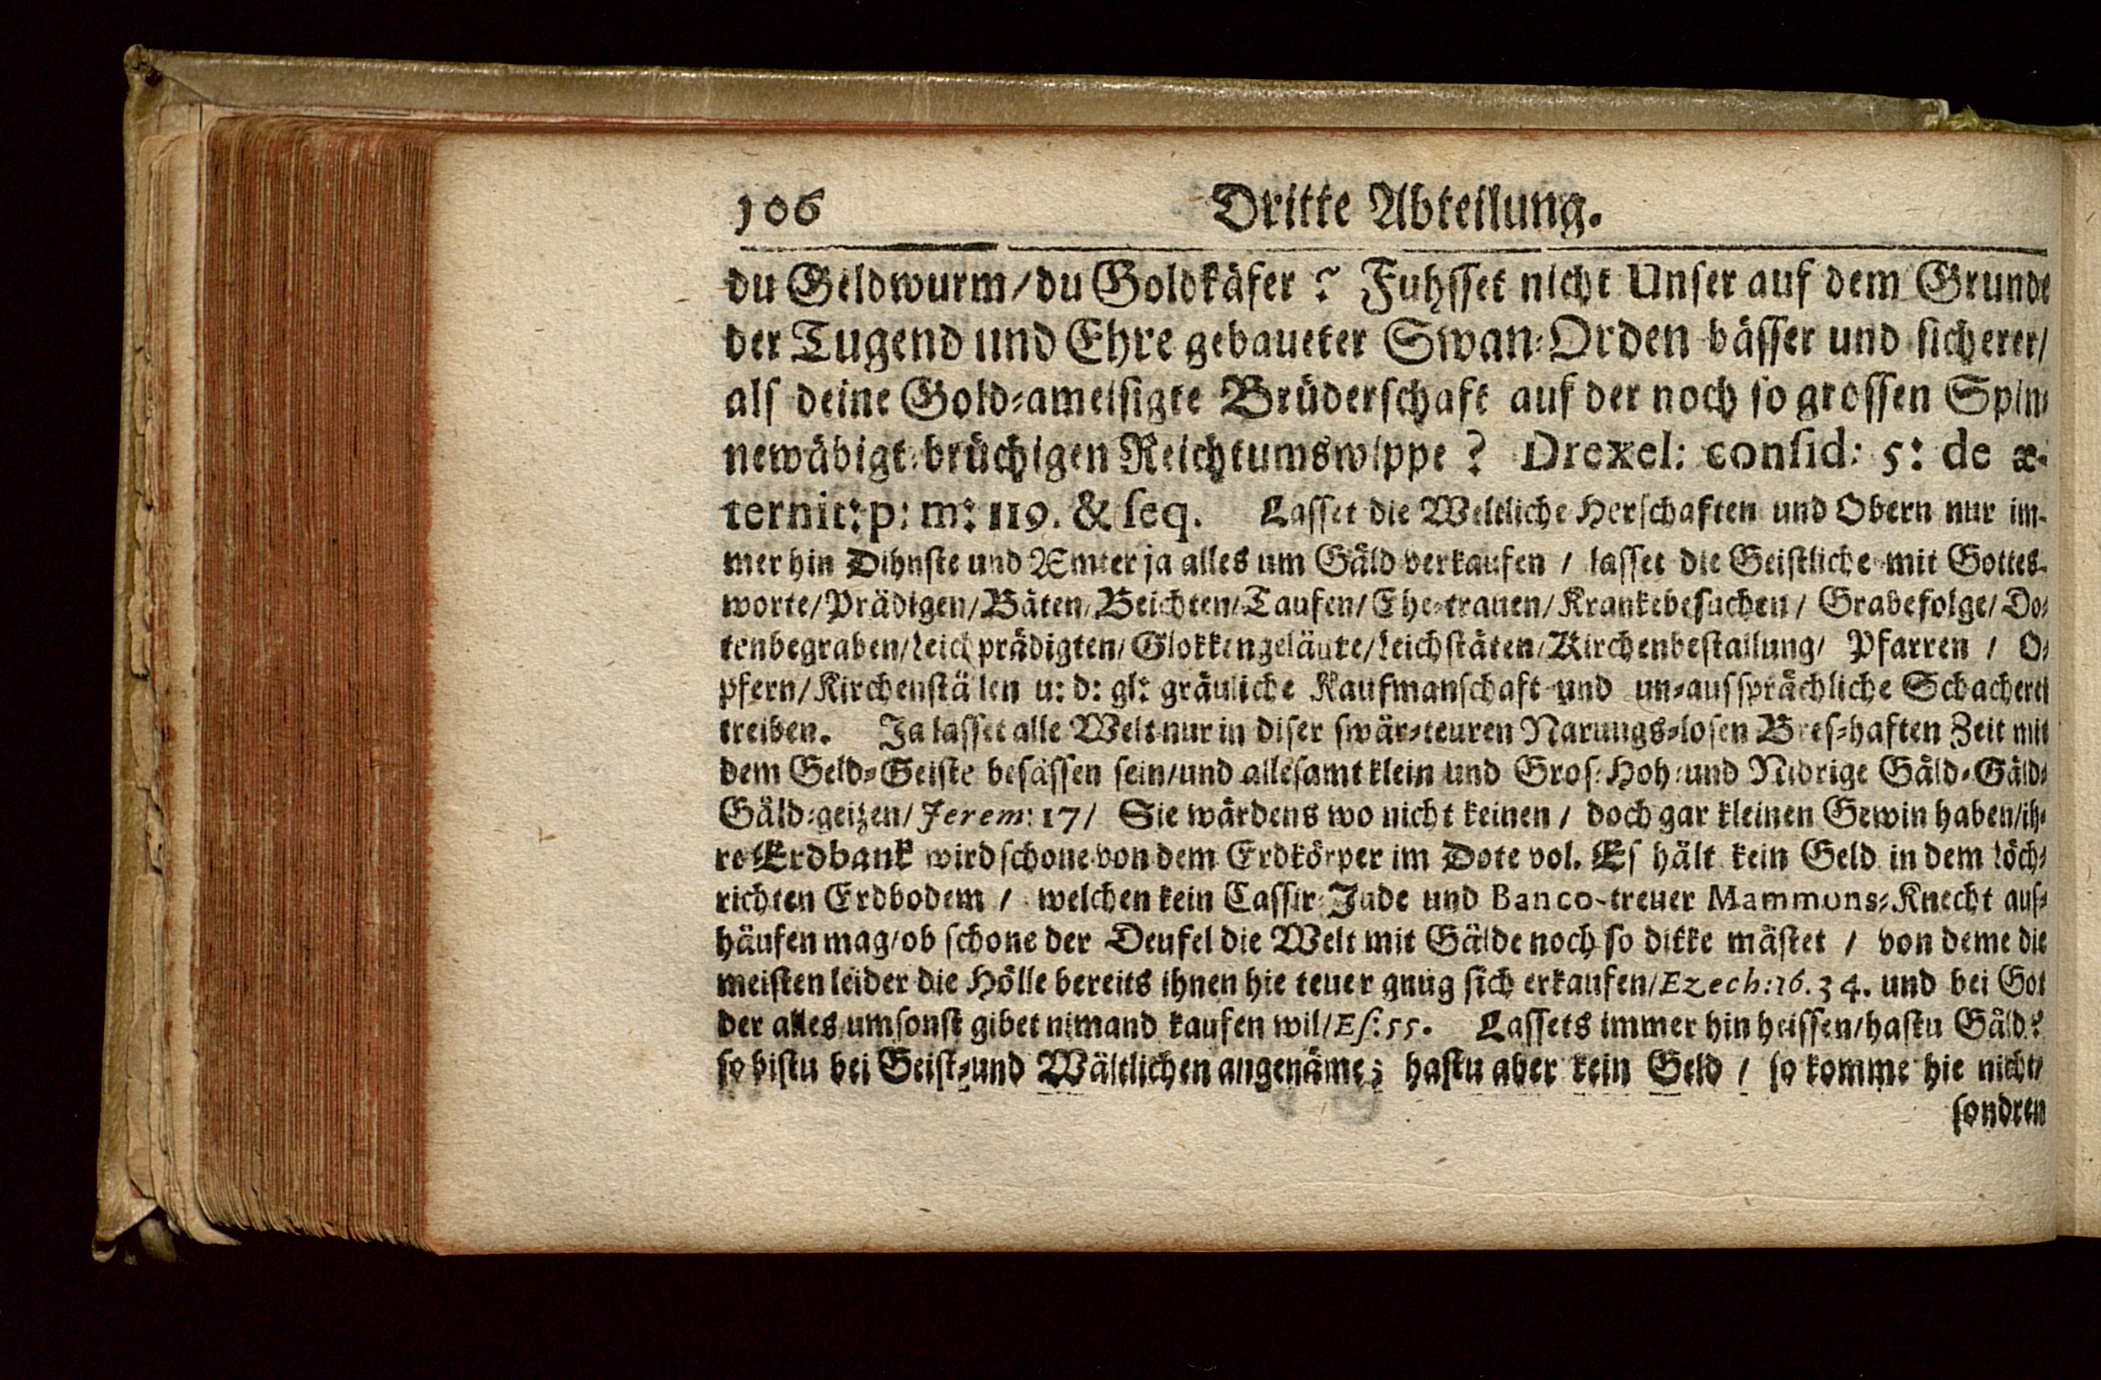 106 Dritte Abteilung.
du Geldwurm/du Goldkäfer? Fuhsset nicht Unser auf dem Grunde
der Tugend und Ehre gebaueter Swan-Orden bässer und sicherer/
als deine Gold-ameisigte Brüderschaft auf der noch so grossen Spin-
newäbigt-brüchigen Reichtumswippe? Drexel: consid: 5: de æ-
ternit: p: m: 119. & seq. Lasset die Weltliche Herschaften und Obern nur im-
mer hin Dihnste und Æmter ja alles um Gäld verkaufen / lasset die Geistliche mit Gottes-
worte/Prädigen/Bäten/Beichten/Taufen/Ehe-trauen/Krankebesuchen/ Grabefolge/Do-
tenbegraben/Leichprädigten/Glokkengeläute/Leichstäten/Kirchenbestallung/ Pfarren / O-
pfern/Kirchenstälen u: d: gl: gräuliche Kaufmanschaft und un-aussprächliche Schacherei
treiben. Ja lasset alle Welt nur in diser swär-teuren Narungs-losen Bres-haften Zeit mit
dem Geld-Geiste besässen sein/und allesamt klein und Gros-Hoh-und Nidrige Gäld-Gäld-
Gäld-geizen/Jerem: 17/ Sie wärdens wo nicht keinen / doch gar kleinen Gewin haben/ih-
re Erdbank wird schone von dem Erdkörper im Dote vol. Es hält kein Geld in dem löch-
richten Erdbodem / welchen kein Cassir-Jude und Banco-treuer Mammons-Knecht auf-
häufen mag/ob schone der Deufel die Welt mit Gälde noch so dikke mästet / von deme die
meisten leider die Hölle bereits ihnen hie teuer gnug sich erkaufen/Ezech: 16. 34. und bei Got
der alles umsonst gibet nimand kaufen wil/Es: 55. Lassets immer hin heissen/hastu Gäld?
so bistu bei Geist-und Wältlichen angenäme; hastu aber kein Geld / so komme hie nicht/
sondren